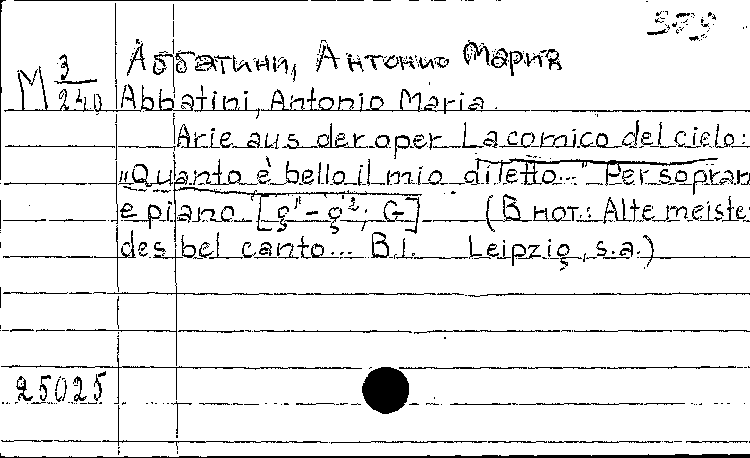 379
Аббатини, Антонио Мария
M 3/240
Abbatini, Antonio Maria.
Arie aus der oper La comica del cielo:
„Quanto è bello il mio diletto..." Per sopran
e piano [g'' - g²; G] (В нот.: Alte meiste
des bel canto... B.I. Leipzig, s.a.)
25025